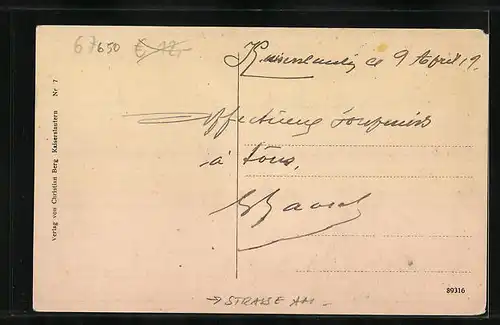 67650 € 12,-
Kaiserslautern le 9 Avril 19.
Affectueux souvenirs
à tous.
Verlag von Christian Berg Kaiserslautern Nr 7
89316
→ STRASSE AM -